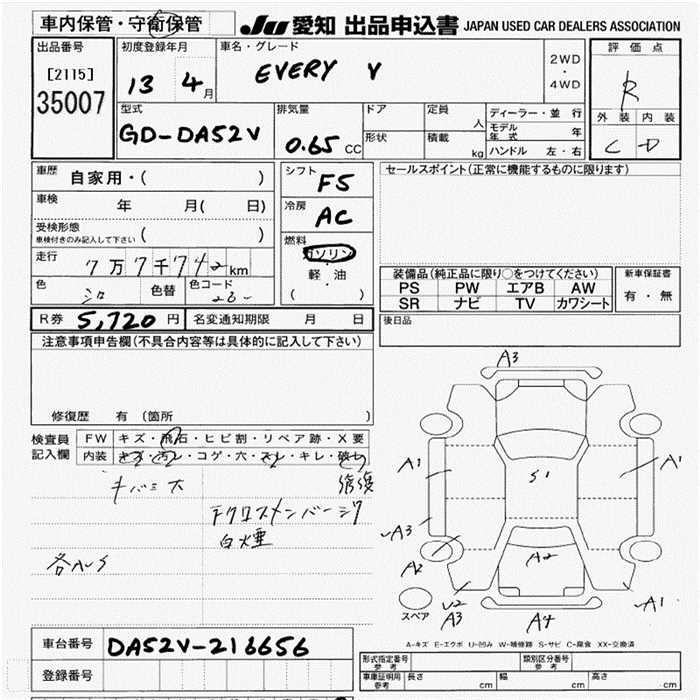 車内保管・守衛保管 JU 愛知 出品申込書 JAPAN USED CAR DEALERS ASSOCIATION
出品番号 初度登録年月 車名・グレード 2WD・4WD 評価点
[2115] 13 4月 EVERY V R
35007
型式 排気量 ドア 定員 人 ディーラー・並行 外装 内装
GD-DA52V 0.65 CC 形状 積載 kg モデル年式 年 C D
ハンドル 左・右
車歴 自家用・( ) シフト F5 セールスポイント(正常に機能するものに限ります)
車検 年 月( 日) 冷房 AC
受検形態 ( )
車検付きのみ記入して下さい
走行 7万7千742km 燃料 ガソリン・軽油 ( )
色 シロ 色替 色コード
装備品(純正品に限り○をつけてください) 新車保証書
PS PW エアB AW 有・無
SR ナビ TV カワシート
R券 5,720円 名変通知期限 月 日 後日品
注意事項申告欄(不具合内容等は具体的に記入して下さい)
修復歴 有(箇所 )
検査員記入欄 FW キズ・飛石・ヒビ割・リペア跡・X要
内装 キズ・汚レ・コゲ・穴・スレ・キレ・破レ
白煙
各AUS
A3
A1 S1 A1
A3
A2 A2
スペア U2 A3 A4 A1
A-キズ E-エクボ U-凹み W-補修跡 S-サビ C-腐食 XX-交換済
車台番号 DA52V-216656
登録番号
形式指定番号 参考 類別区分番号 参考
車庫証明用 参考 長さ cm 幅 cm 高さ cm